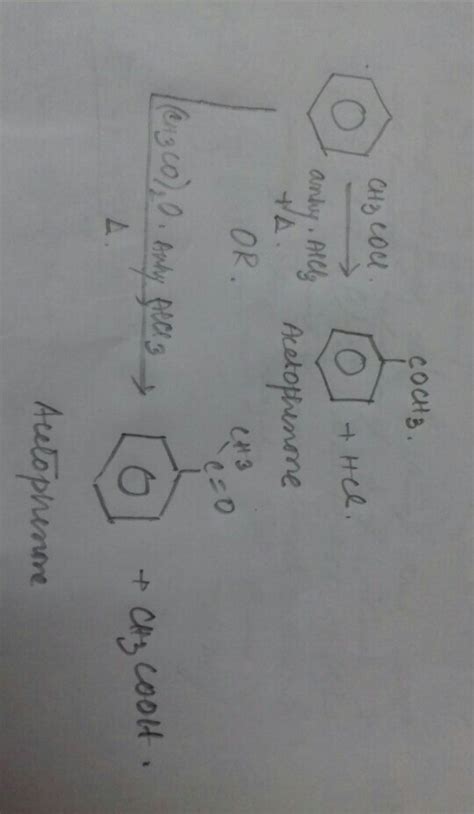 CH3COCl.
anhy. AlCl3
+ Δ.
COCH3.
+ HCl.
Acetophenone
OR.
(CH3CO)2O. Anhy AlCl3
Δ.
CH3
C=O
+ CH3COOH.
Acetophenone